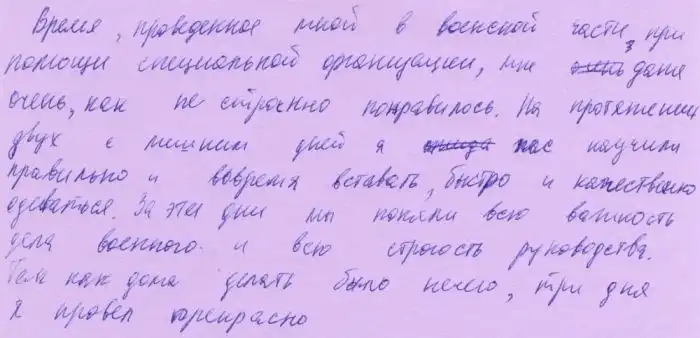 Время, проведенное мной в воинской части, при
помощи специальной организации, мне очень даже
очень, как не странно понравилось. На протяжении
двух с лишним дней я нас научили
правильно и вовремя вставать, быстро и качественно
одеваться. За эти дни мы поняли всю важность
дела военного и всю строгость руководства.
Тем как дома делать было нечего, три дня
я провел прекрасно